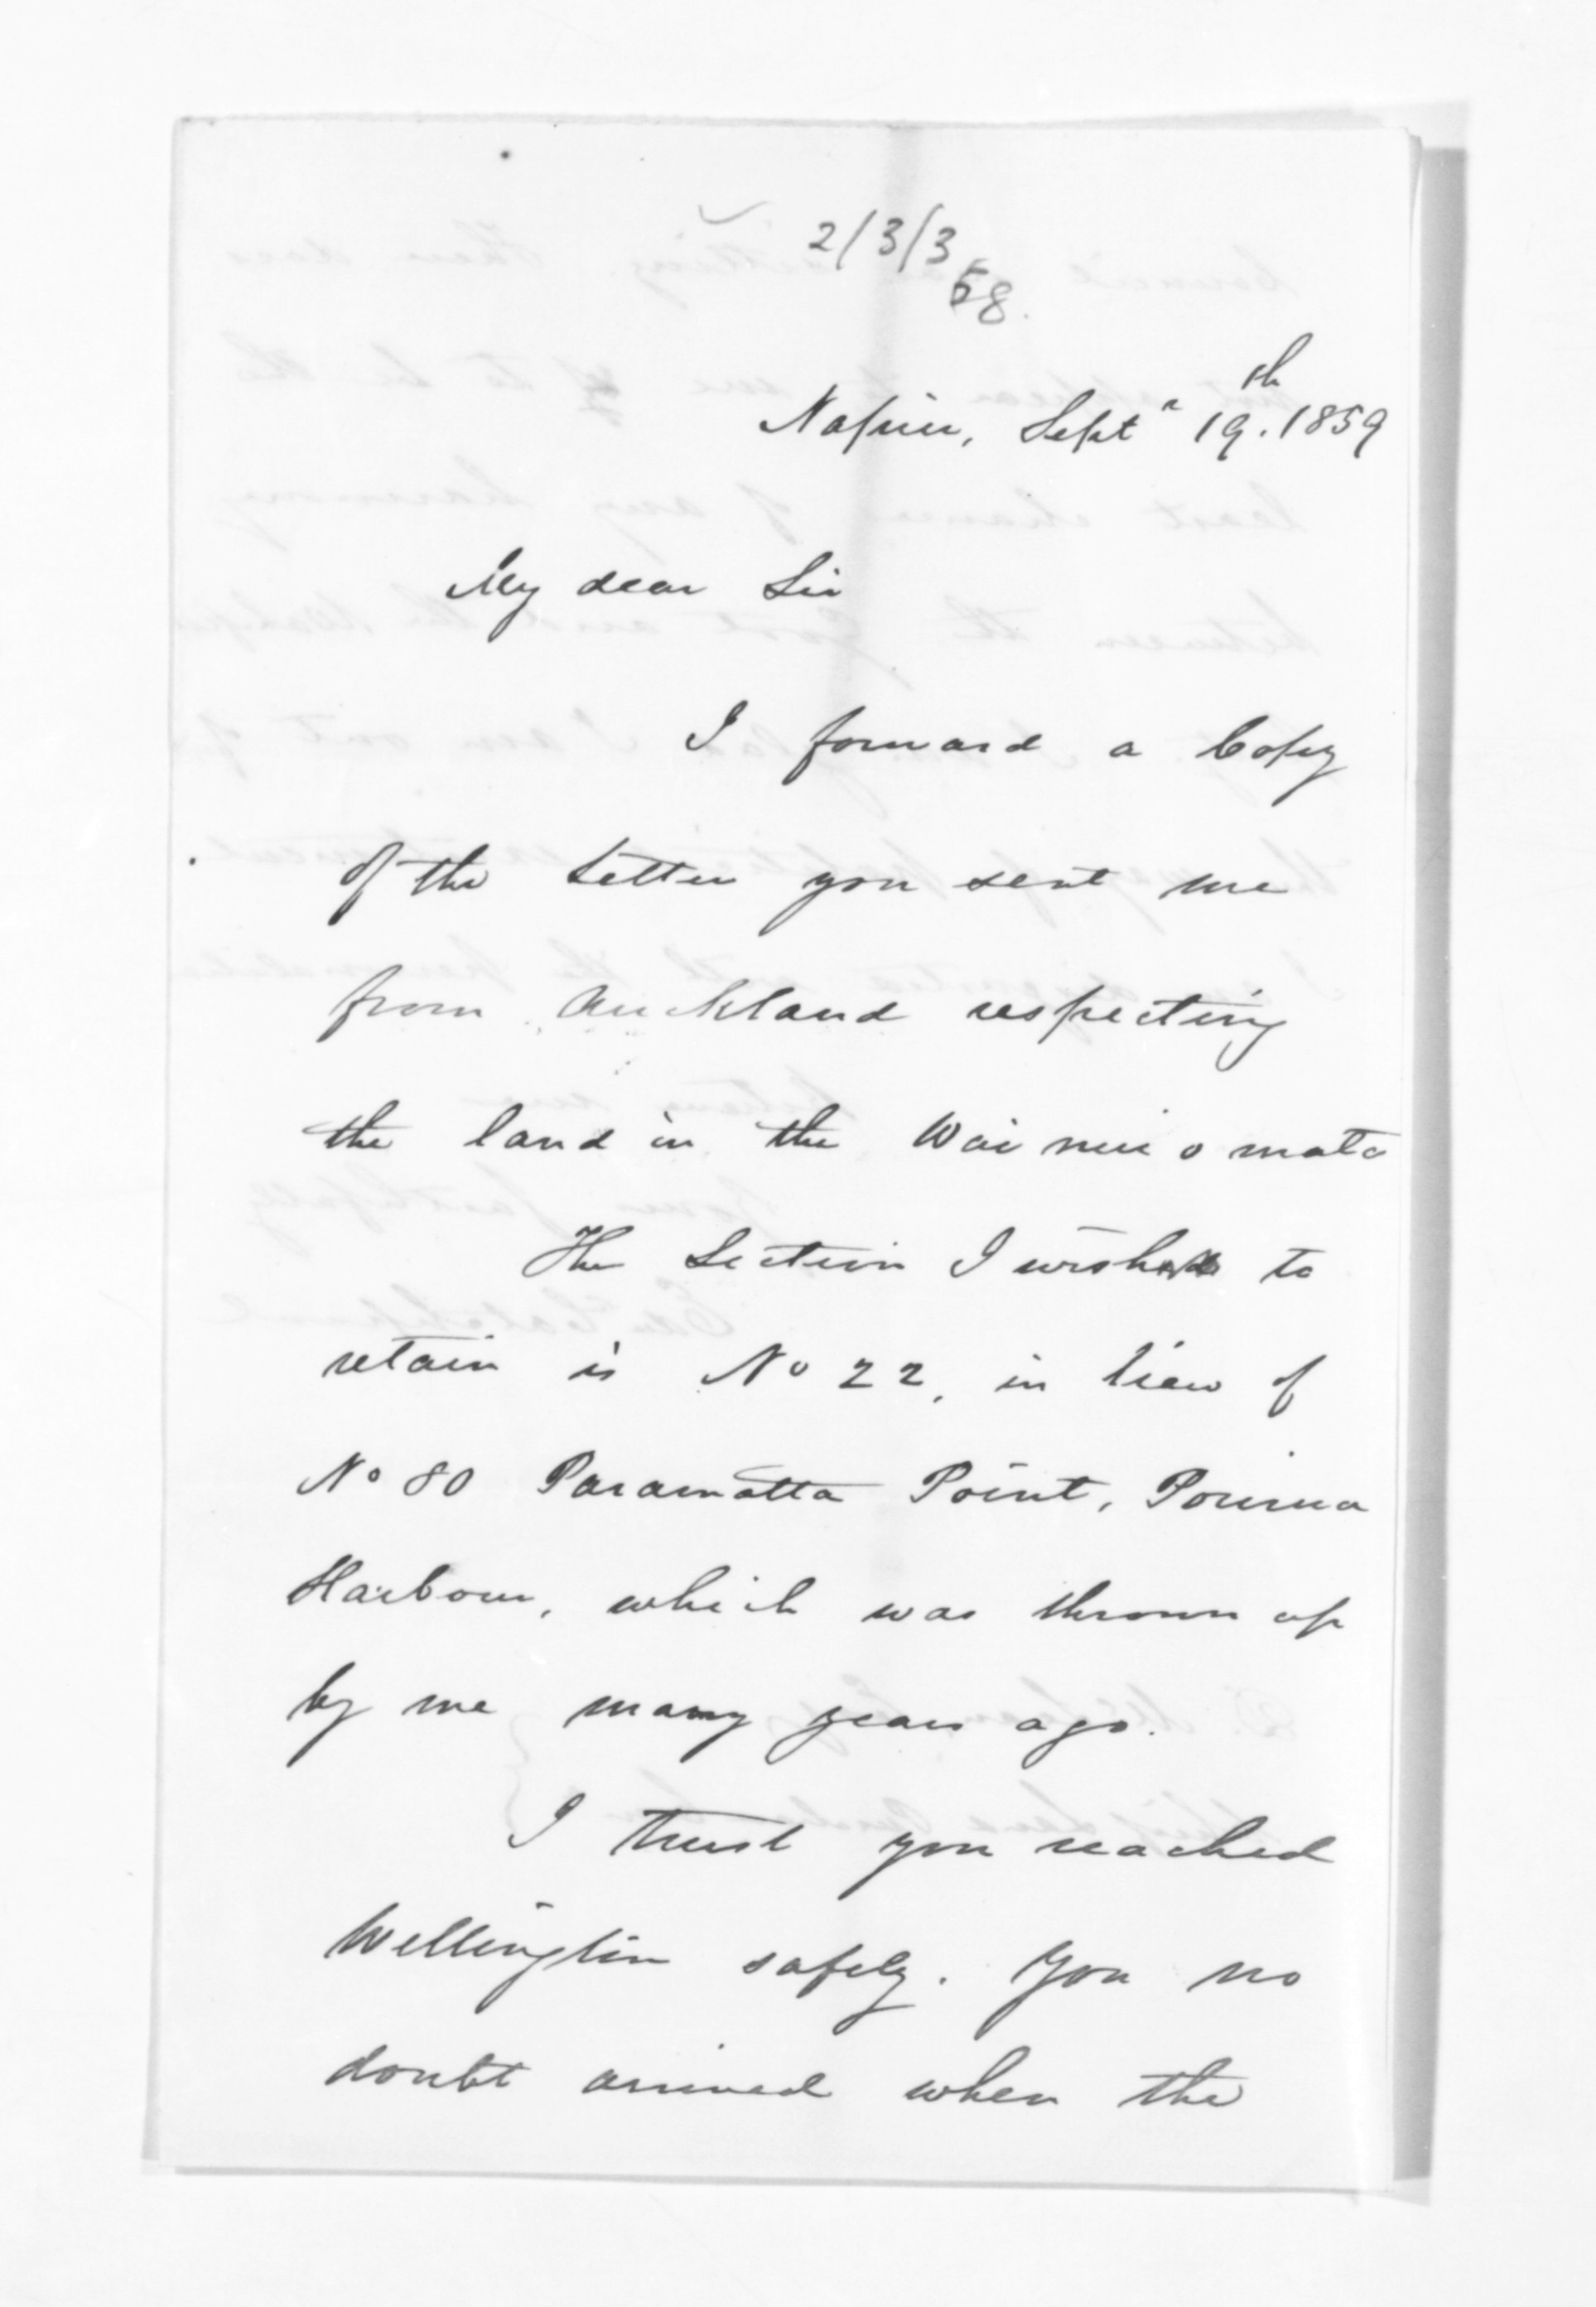 2/3/3
58.
Napier, Septr 19th. 1859
My dear Sir
I forward a Copy
of the letter you sent me
from Auckland respecting
the land in the Wainuiomata
The Section I wished to
retain is No 22, in lieu of
No 80 Paramatta Point, Porirua
Harbour, which was thrown up
by me many years ago.
I trust you reached
Wellington safely. You no
doubt arrived when the